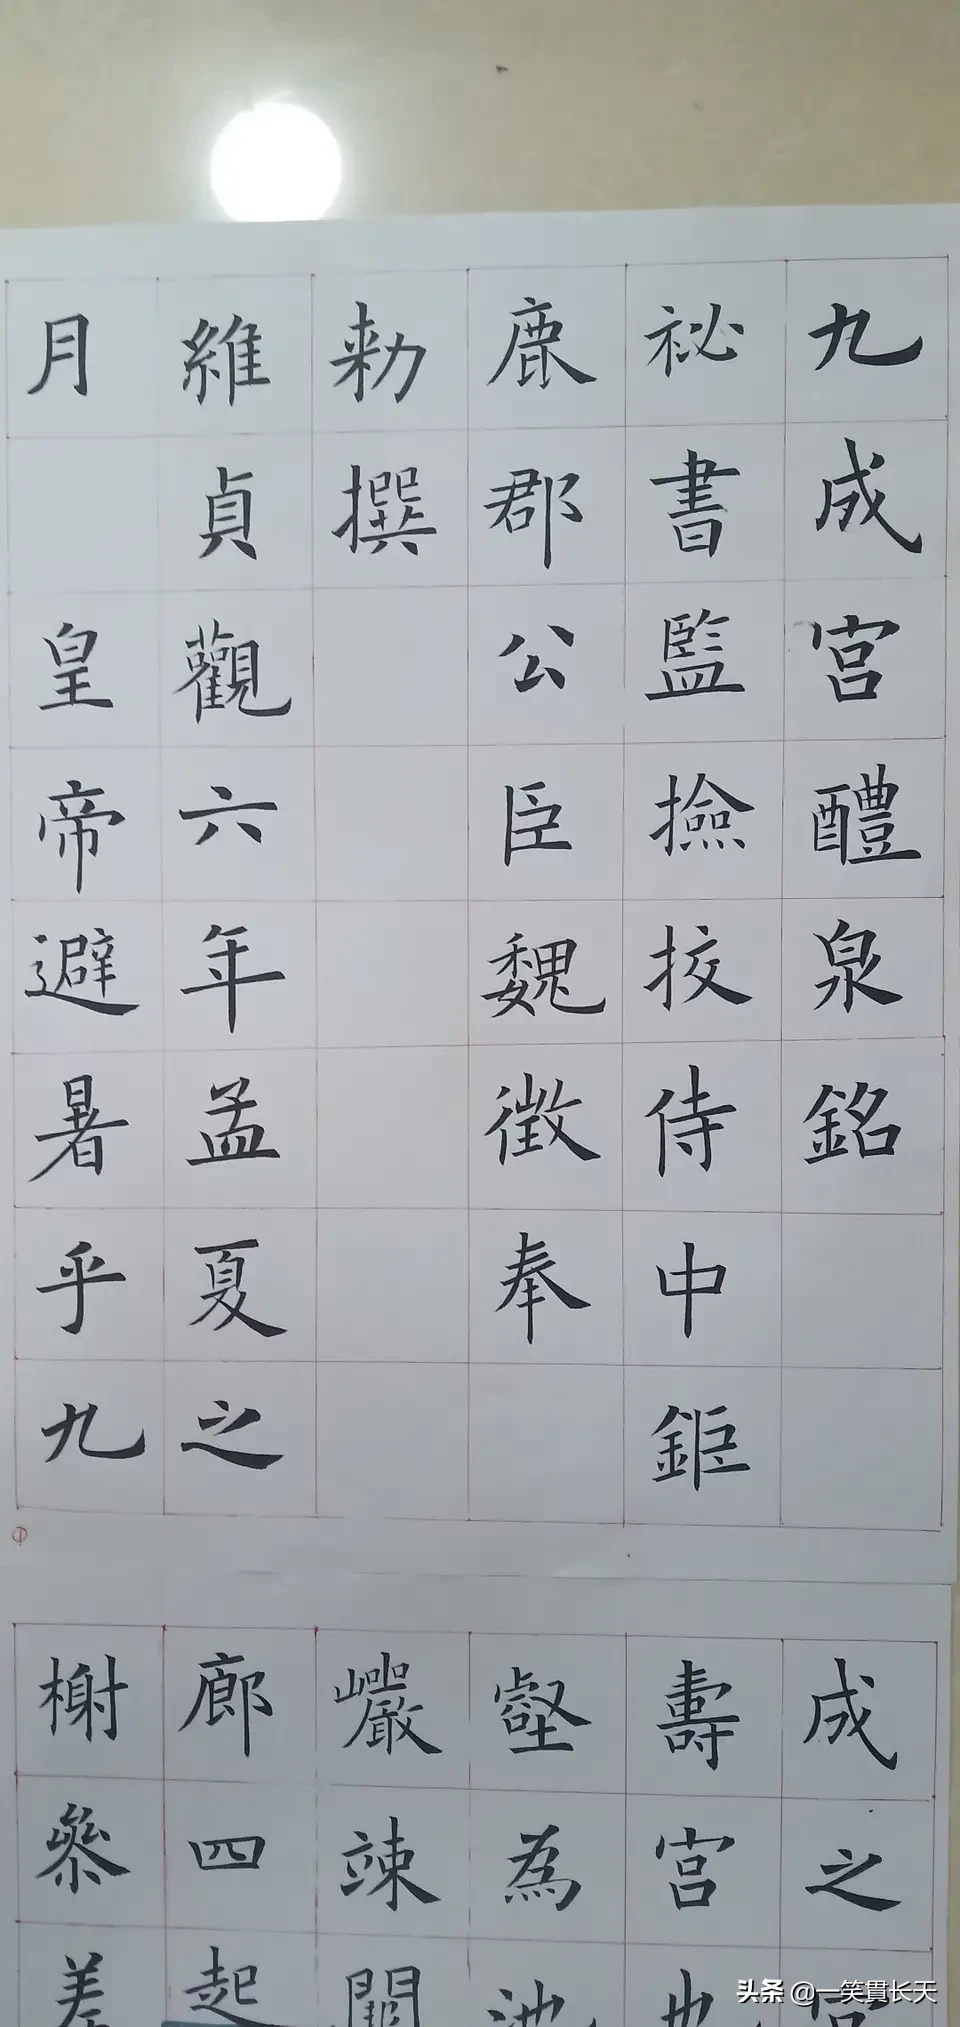 九成宮醴泉銘
祕書監撿挍侍中鉅
鹿郡公臣魏徵奉
勑撰
維貞觀六年孟夏之
月皇帝避暑乎九
成之宮
壽宮也
壑為池
巖竦闕
廊四起
榭參差
头条 @一笑貫长天